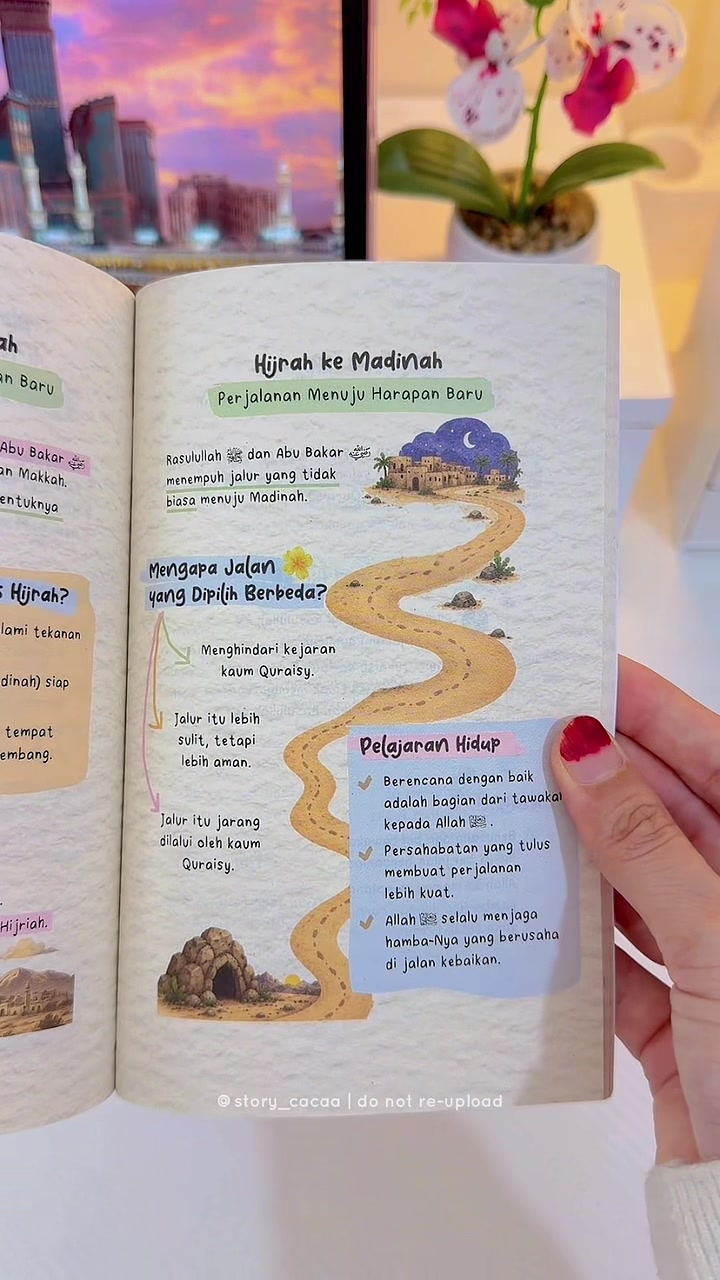 ah
an Baru
Abu Bakar رضي الله عنه
an Makkah.
entuknya
s Hijrah?
lami tekanan
dinah) siap
tempat
embang.
Hijriah.
Hijrah ke Madinah
Perjalanan Menuju Harapan Baru
Rasulullah ﷺ dan Abu Bakar رضي الله عنه
menempuh jalur yang tidak
biasa menuju Madinah.
Mengapa Jalan
yang Dipilih Berbeda?
Menghindari kejaran
kaum Quraisy.
Jalur itu lebih
sulit, tetapi
lebih aman.
Jalur itu jarang
dilalui oleh kaum
Quraisy.
Pelajaran Hidup
Berencana dengan baik
adalah bagian dari tawakal
kepada Allah ﷻ.
Persahabatan yang tulus
membuat perjalanan
lebih kuat.
Allah ﷻ selalu menjaga
hamba-Nya yang berusaha
di jalan kebaikan.
@story_cacaa | do not re-upload